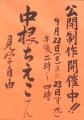 公開制作開催中!!
9月22日(日)23日(月・祝)
午後二時〜四時
中根ちえこさん
見学自由